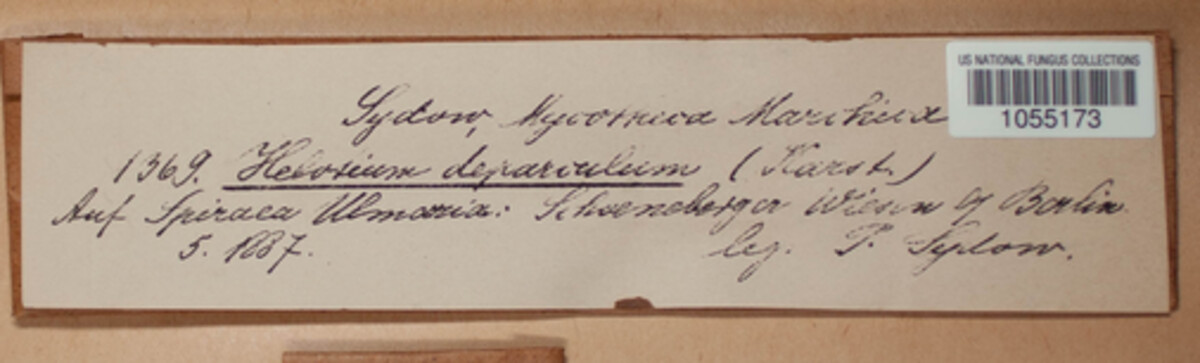 US NATIONAL FUNGUS COLLECTIONS
1055173
Sydow, Mycotheca Marchica
1369. Helotium deparculum (Karst.)
Auf Spiraea Ulmaria: Schoeneberger Wiesen b/ Berlin.
5. 1887. leg. P. Sydow.